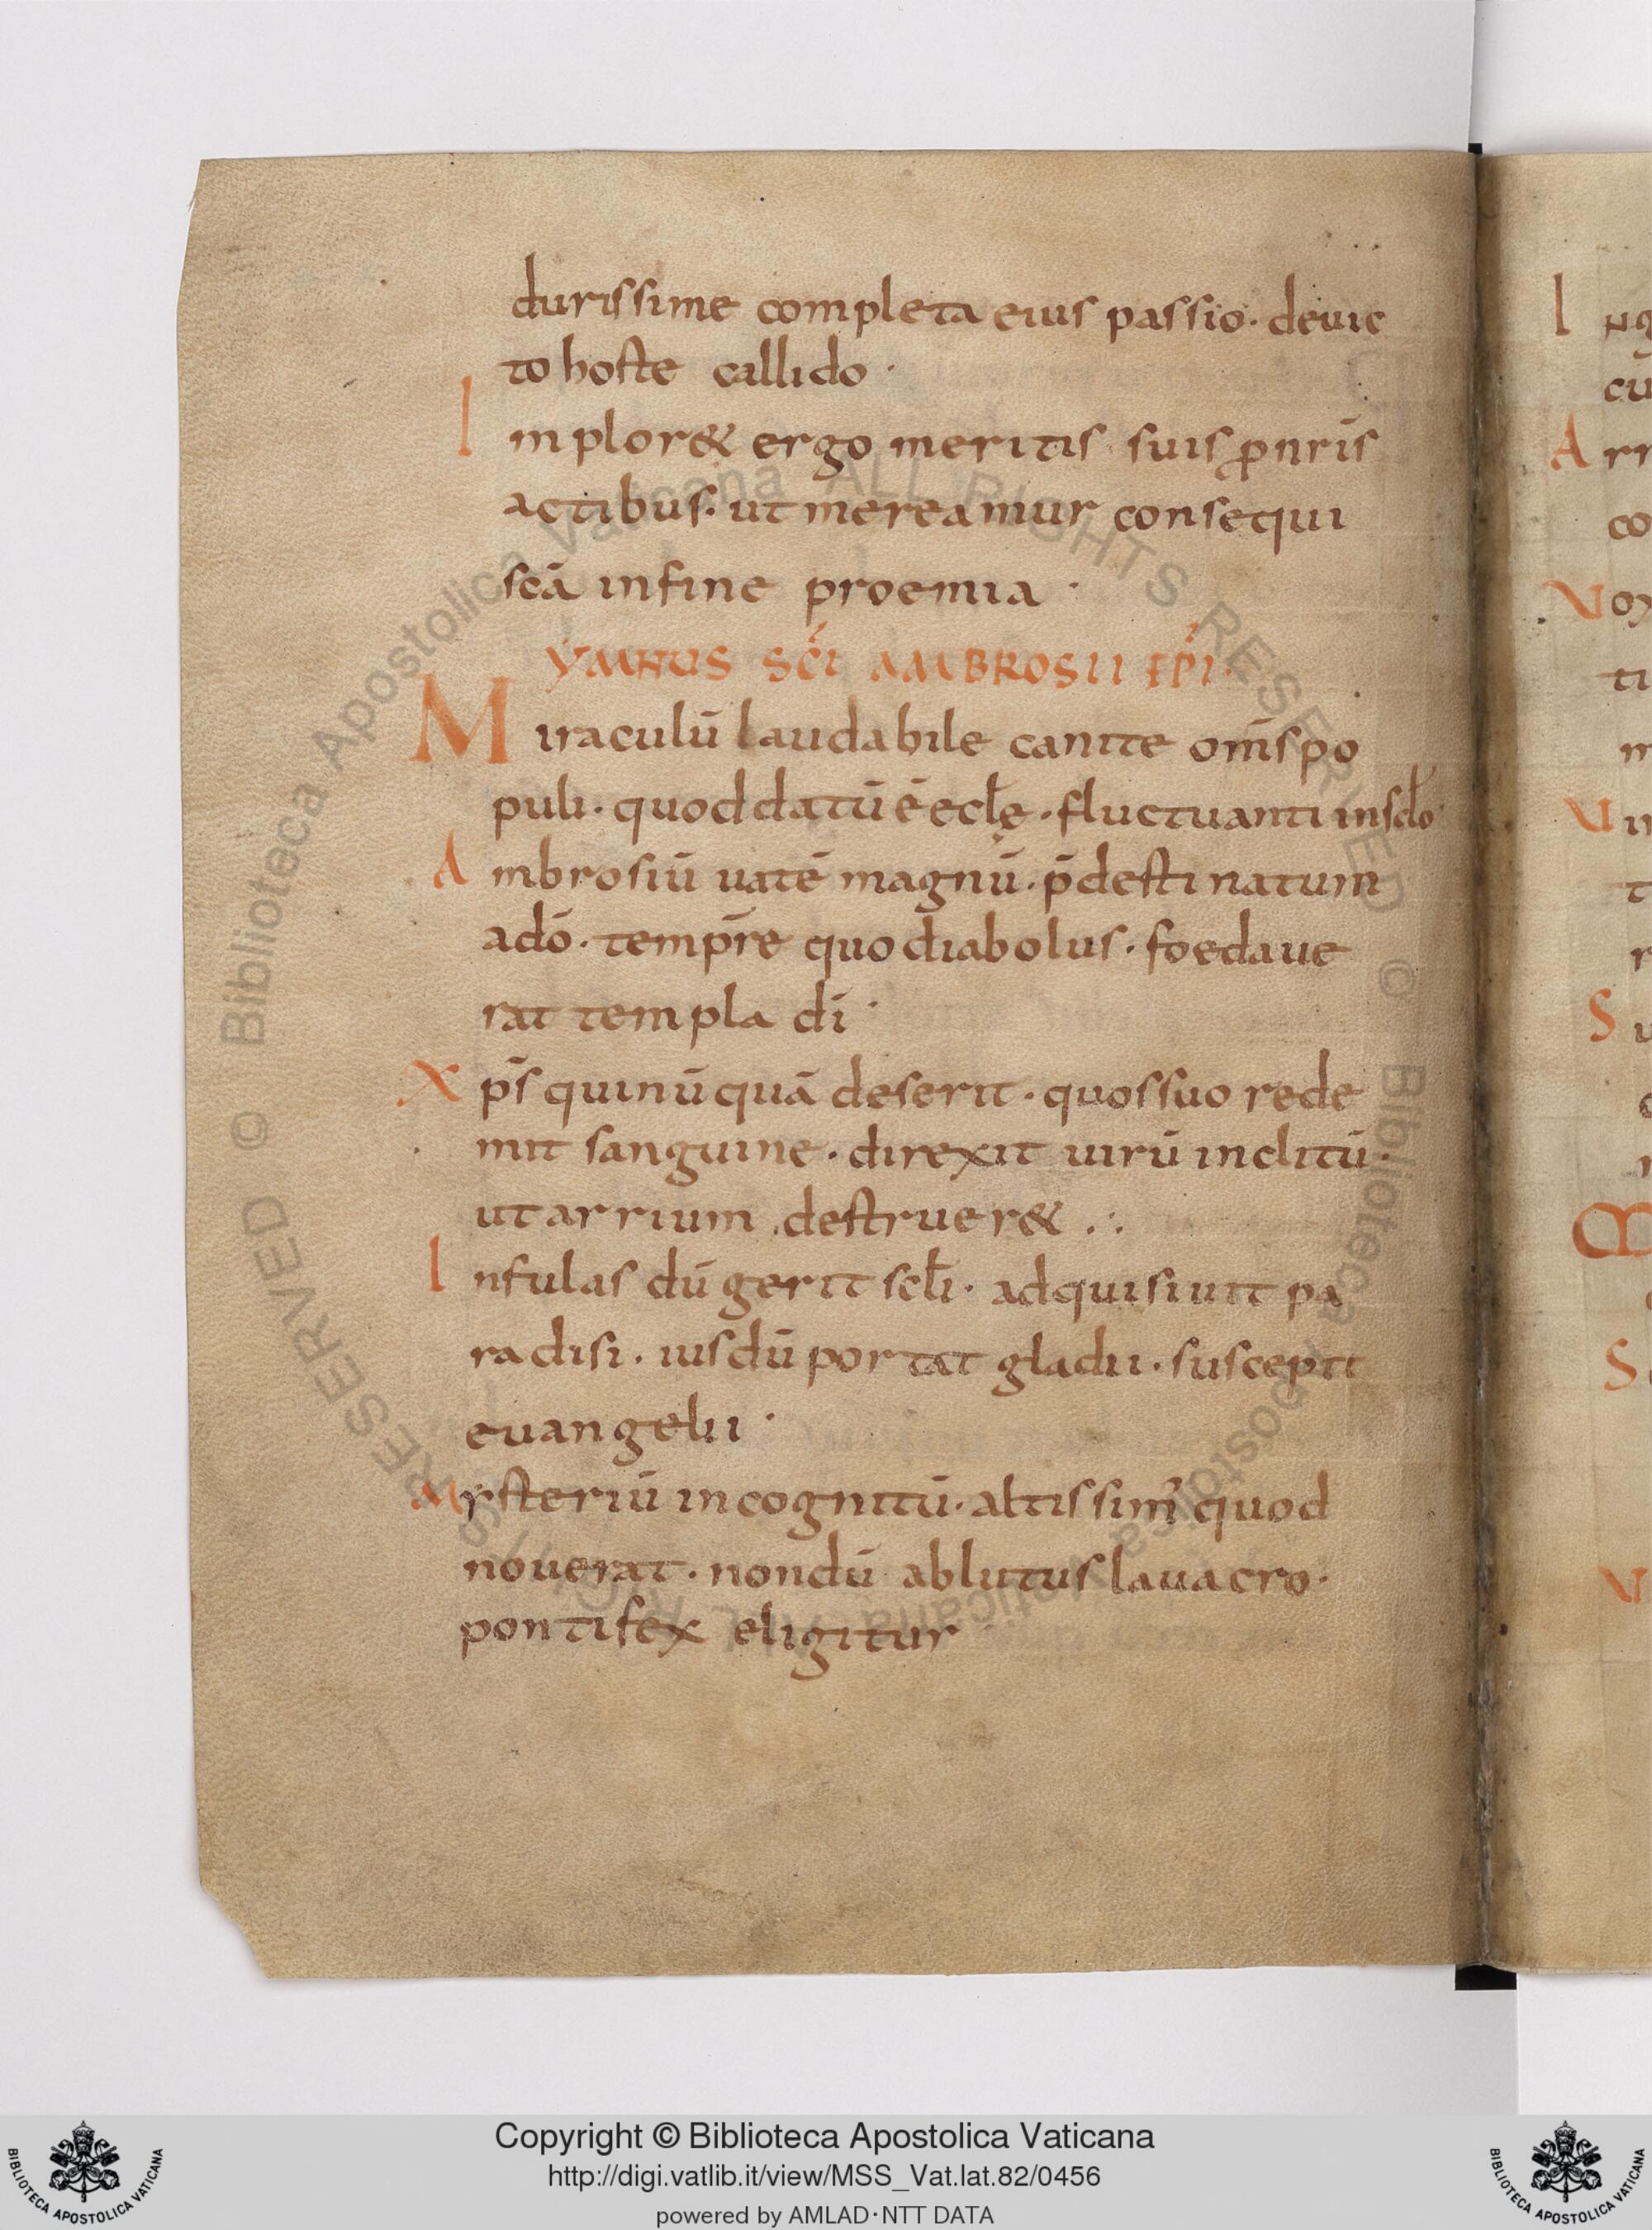 durissime completa eius passio· deuic
to hoste callido·
I mplor& ergo meritis suis ꝓ nr̄is
actibus· ut mereamur consequi
sc̄a infine proemia·
YMNUS SC̄I AMBROSII EP̄I·
M iraculū laudabile canite om̄s po
puli· quod datū ē ecl̄ę· fluctuanti in sclō
A mbrosiū uatē magnū· p̄destinatum
adō· temp̄re quo diabolus· foedaue
rat templa dī·
X p̄s qui nūquā deserit· quos suo rede
mit sanguine· direxit uirū inclitū·
ut arrium destruer& ·:·
I nfulas dū gerit scl̄i· adquisiuit pa
radisi· ius dū portat gladii· suscepit
euangelii·
M ysteriū incognitū· altissim' quod
nouerat· nondū ablutus lauacro·
pontifex eligitur
I nq
cū
A rr
co
V ox
ti
m
U
t
r
S u
M
S
V
© Biblioteca Apostolica Vaticana ALL RIGHTS RESERVED © Biblioteca Apostolica Vaticana ALL RIGHTS RESERVED
Copyright © Biblioteca Apostolica Vaticana
http://digi.vatlib.it/view/MSS_Vat.lat.82/0456
powered by AMLAD·NTT DATA
BIBLIOTECA APOSTOLICA VATICANA
BIBLIOTECA APOSTOLICA VATICANA